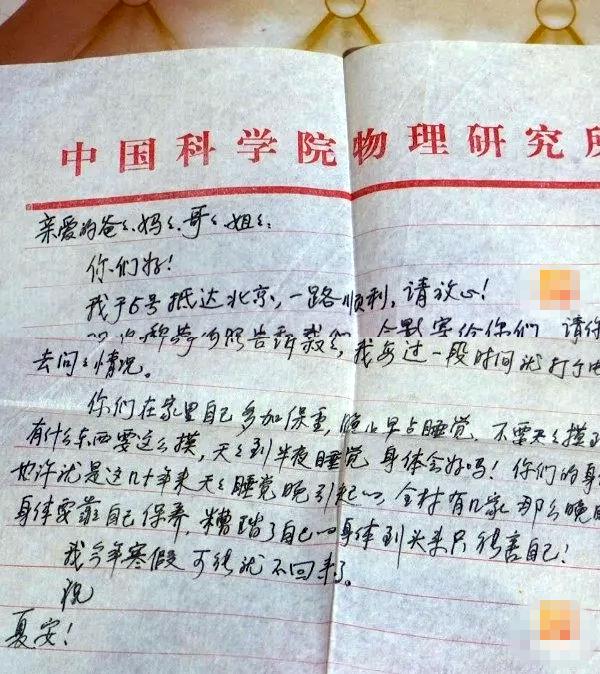 中国科学院物理研究所
亲爱的爸々、妈々、哥々、姐々:
你们好!
我于5号抵达北京,一路顺利,请放心!
告诉 给你们 请你
去问々情况。 我每过一段时间就打个电
你们在家里自己多加保重,晚上早点睡觉,不要天々摸到
有什么东西要这么摸,天々到半夜睡觉 身体会好吗!你们的身
也许就是这几十年来天々睡觉晚引起的,全村有几家那么晚
身体要靠自己保养,糟蹋了自己的身体到头来只能害自己!
我今年寒假可能就不回来了。
祝
夏安!